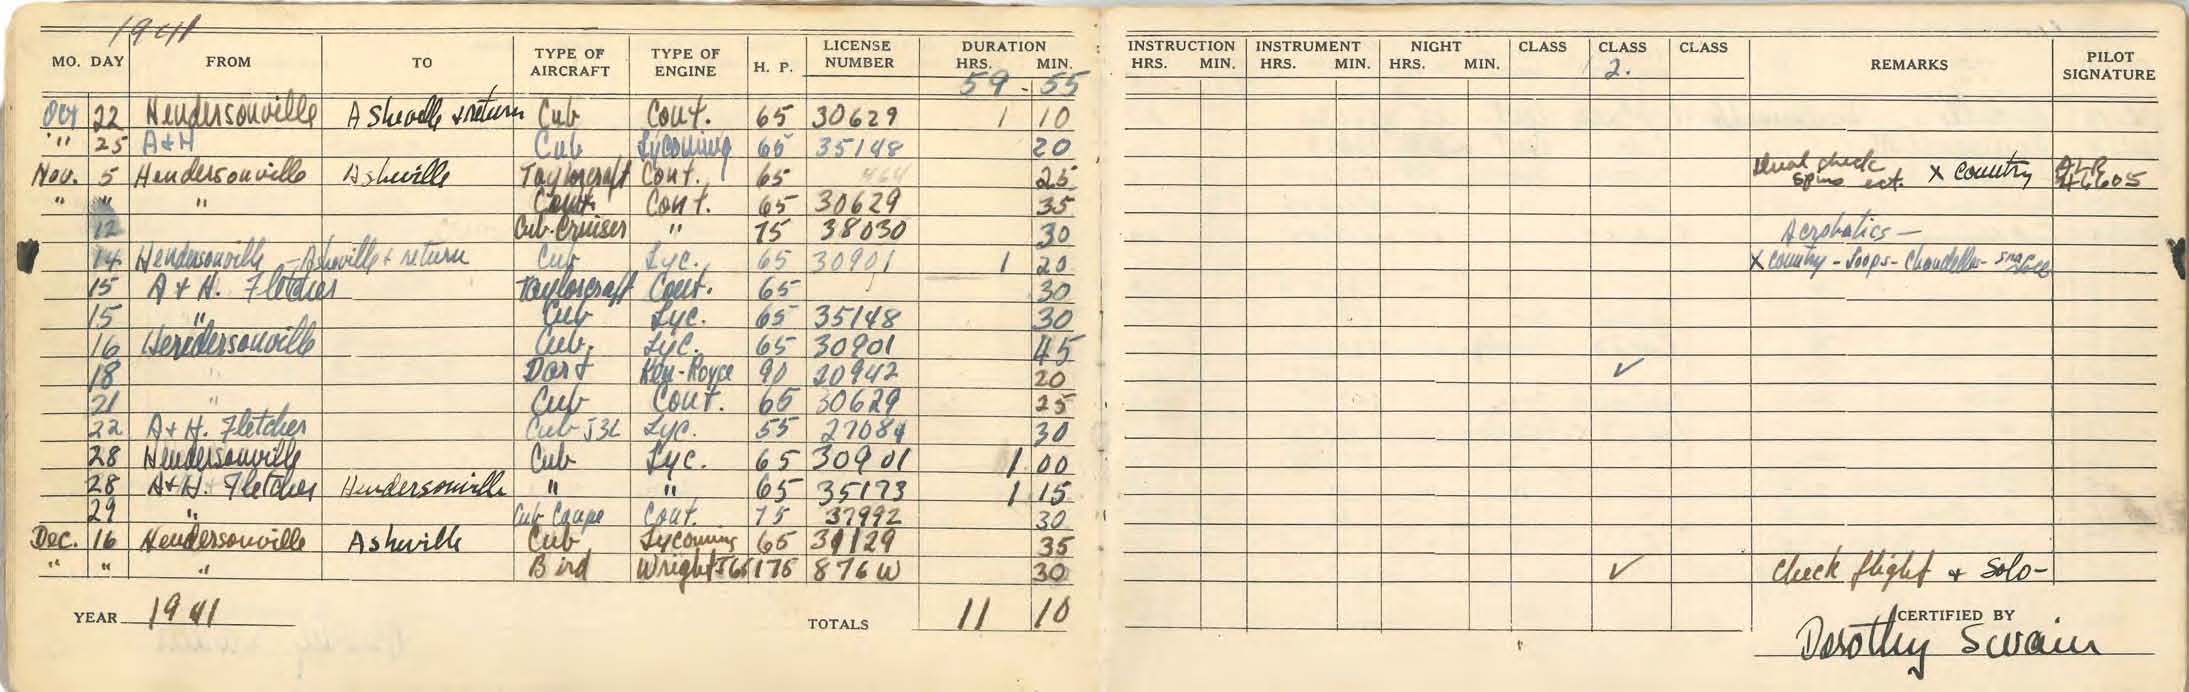 1941
MO. DAY FROM TO TYPE OF AIRCRAFT TYPE OF ENGINE H. P. LICENSE NUMBER DURATION HRS. MIN. INSTRUCTION HRS. MIN. INSTRUMENT HRS. MIN. NIGHT HRS. MIN. CLASS CLASS 2. CLASS REMARKS PILOT SIGNATURE
59 - 55
Oct 22 Hendersonville Asheville & return Cub Cont. 65 30629 1 10
" 25 A & H Cub Lycoming 65 35148 20
Nov. 5 Hendersonville Asheville Taylorcraft Cont. 65 464 25 Dual check spins ect. X country 46605
" " " Cont. 65 30629 35
12 Cub-Cruiser " 75 38030 30 Acrobatics —
14 Hendersonville - Asheville & return Cub Lyc. 65 30901 1 20 X country - Loops - Chandelles -
15 A & H. Fletcher Taylorcraft Cont. 65 30
15 " Cub Lyc. 65 35148 30
16 Hendersonville Cub. Lyc. 65 30901 45
18 " Dart Ken-Royce 90 20942 20 ✓
21 " Cub Cont. 65 30629 25
22 A & H. Fletcher Cub J3L Lyc. 55 27084 30
28 Hendersonville Cub Lyc. 65 30901 1 00
28 A & H. Fletcher Hendersonville " " 65 35173 1 15
29 " Cub Coupe Cont. 75 37992 30
Dec. 16 Hendersonville Asheville Cub Lycoming 65 31129 35
" " " Bird Wright 175 876W 30 ✓ Check flight & Solo -
YEAR 1941 TOTALS 11 10 CERTIFIED BY
Dorothy Swain